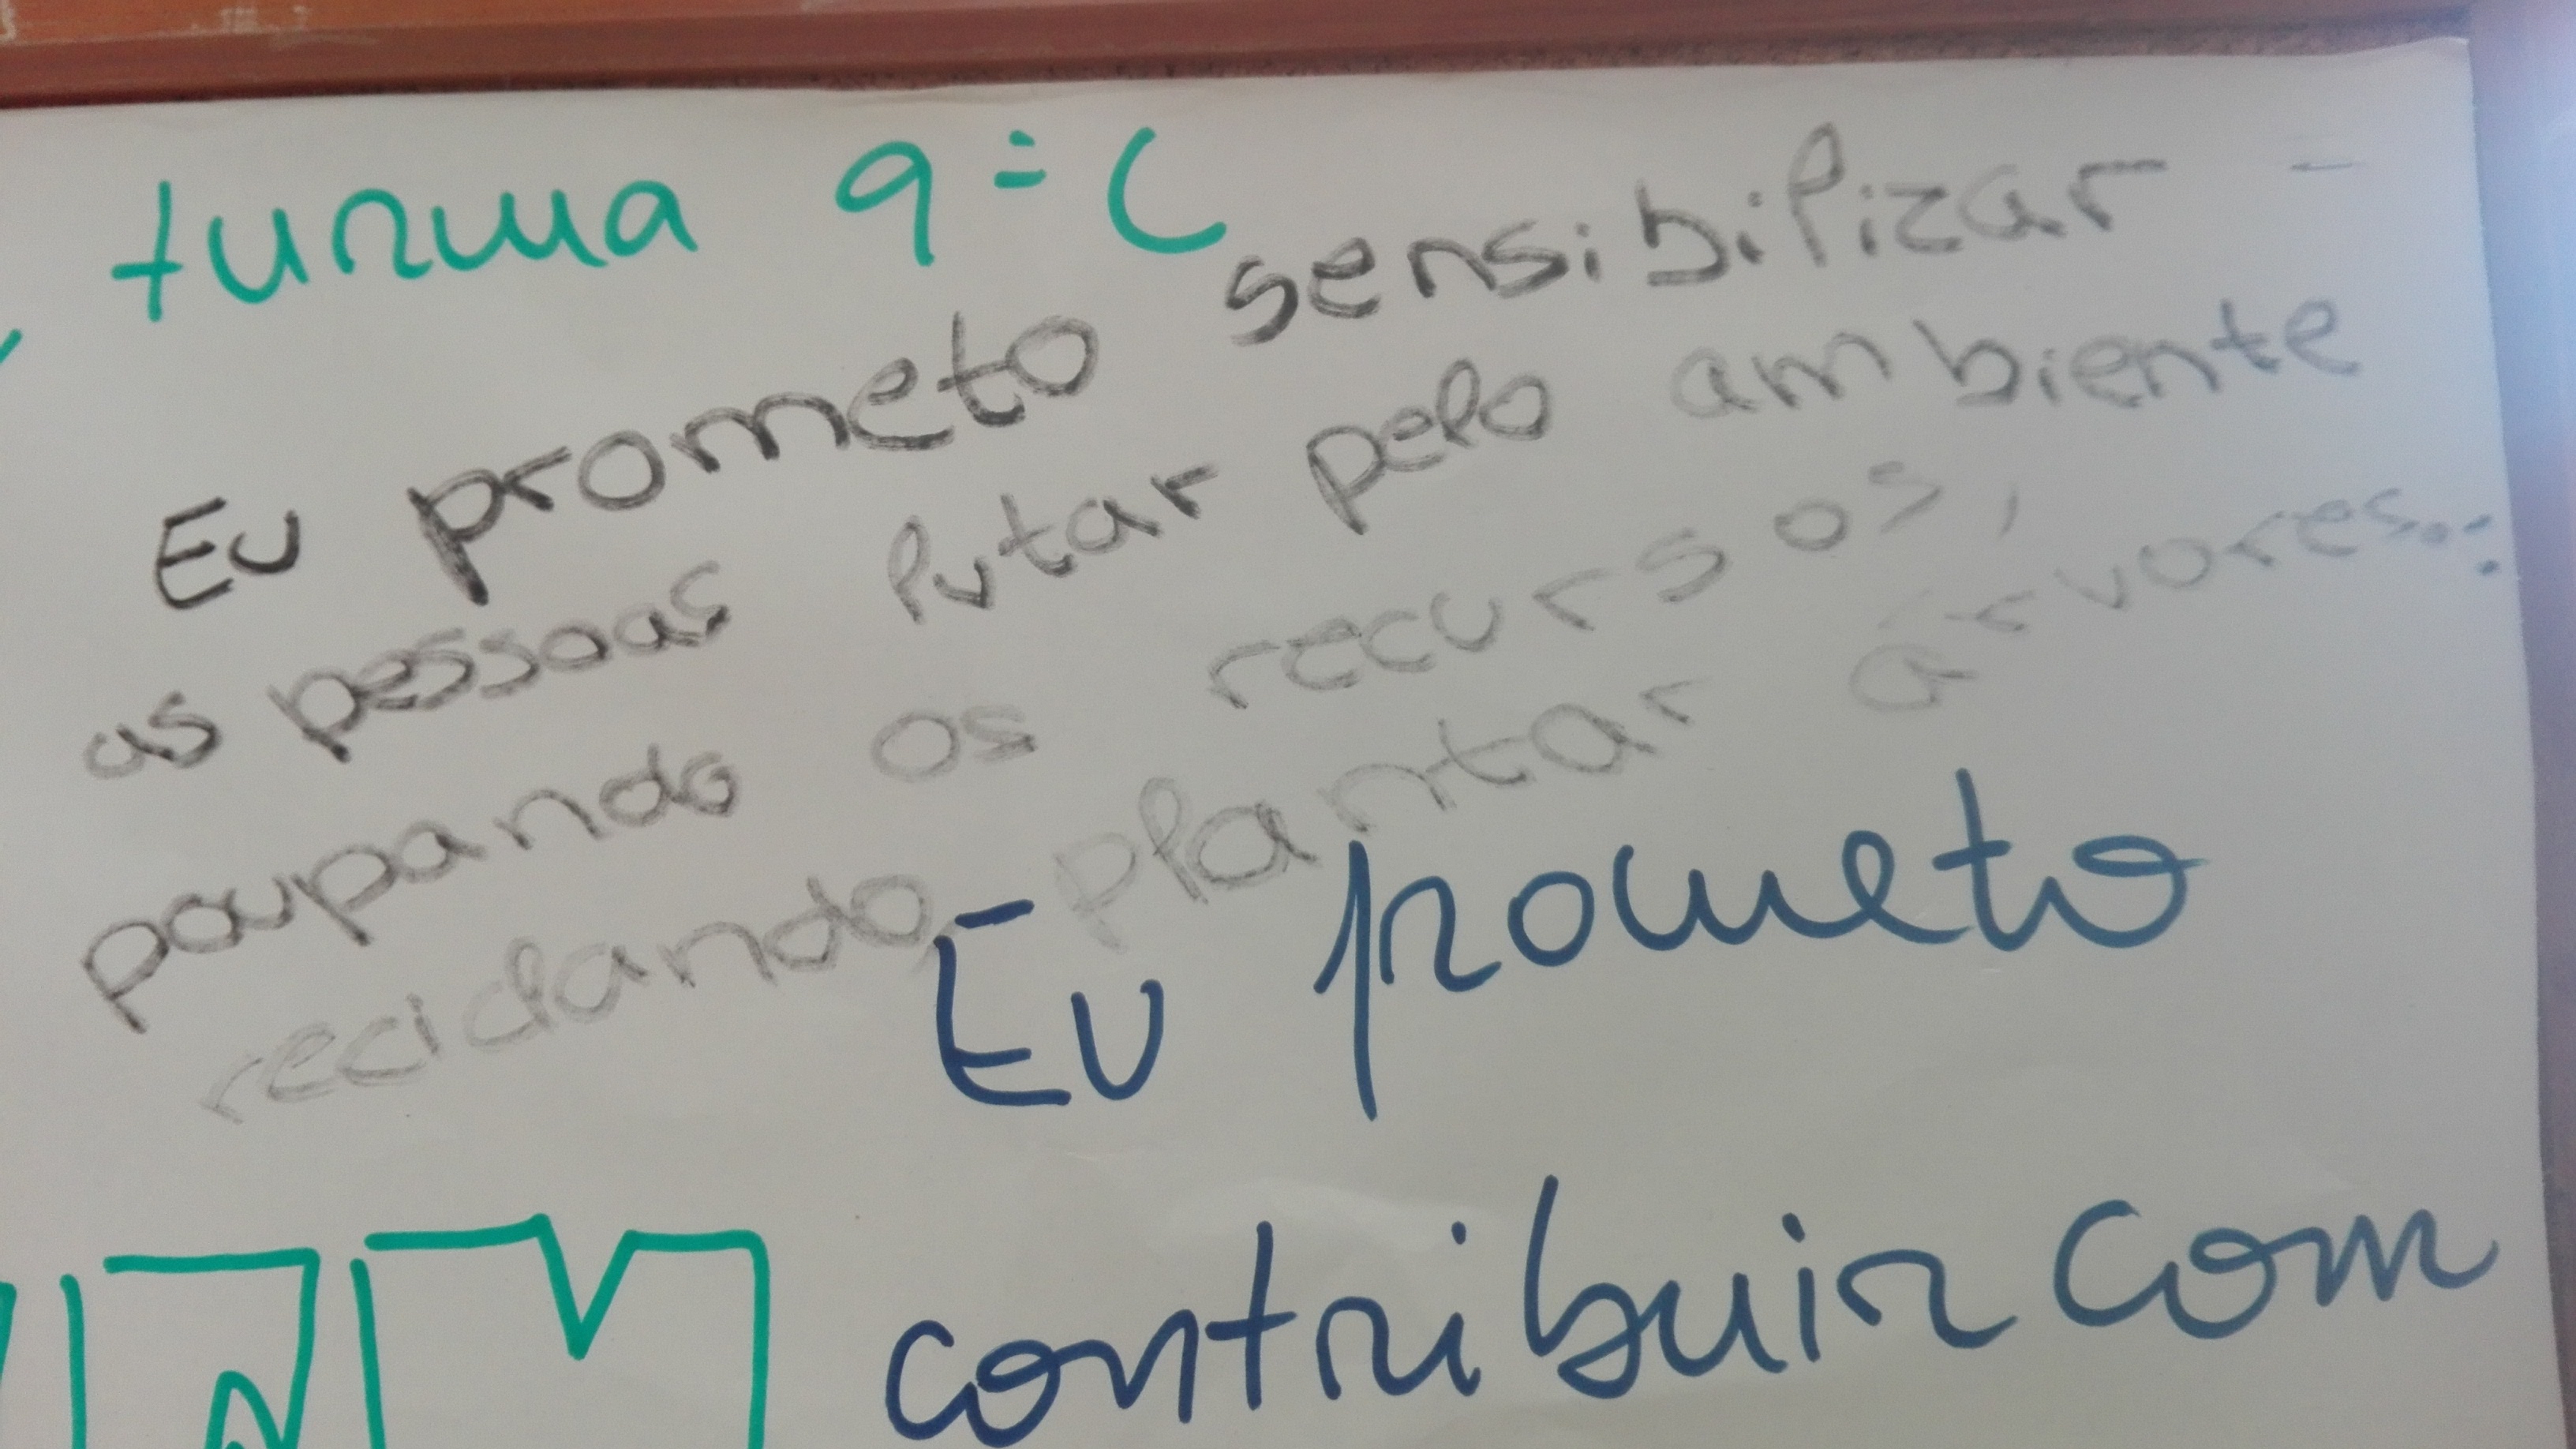 turma 9º C
Eu prometo sensibilizar
as pessoas lutar pelo ambiente
poupando os recursos,
reciclando, plantar árvores...
Eu prometo
contribuir com